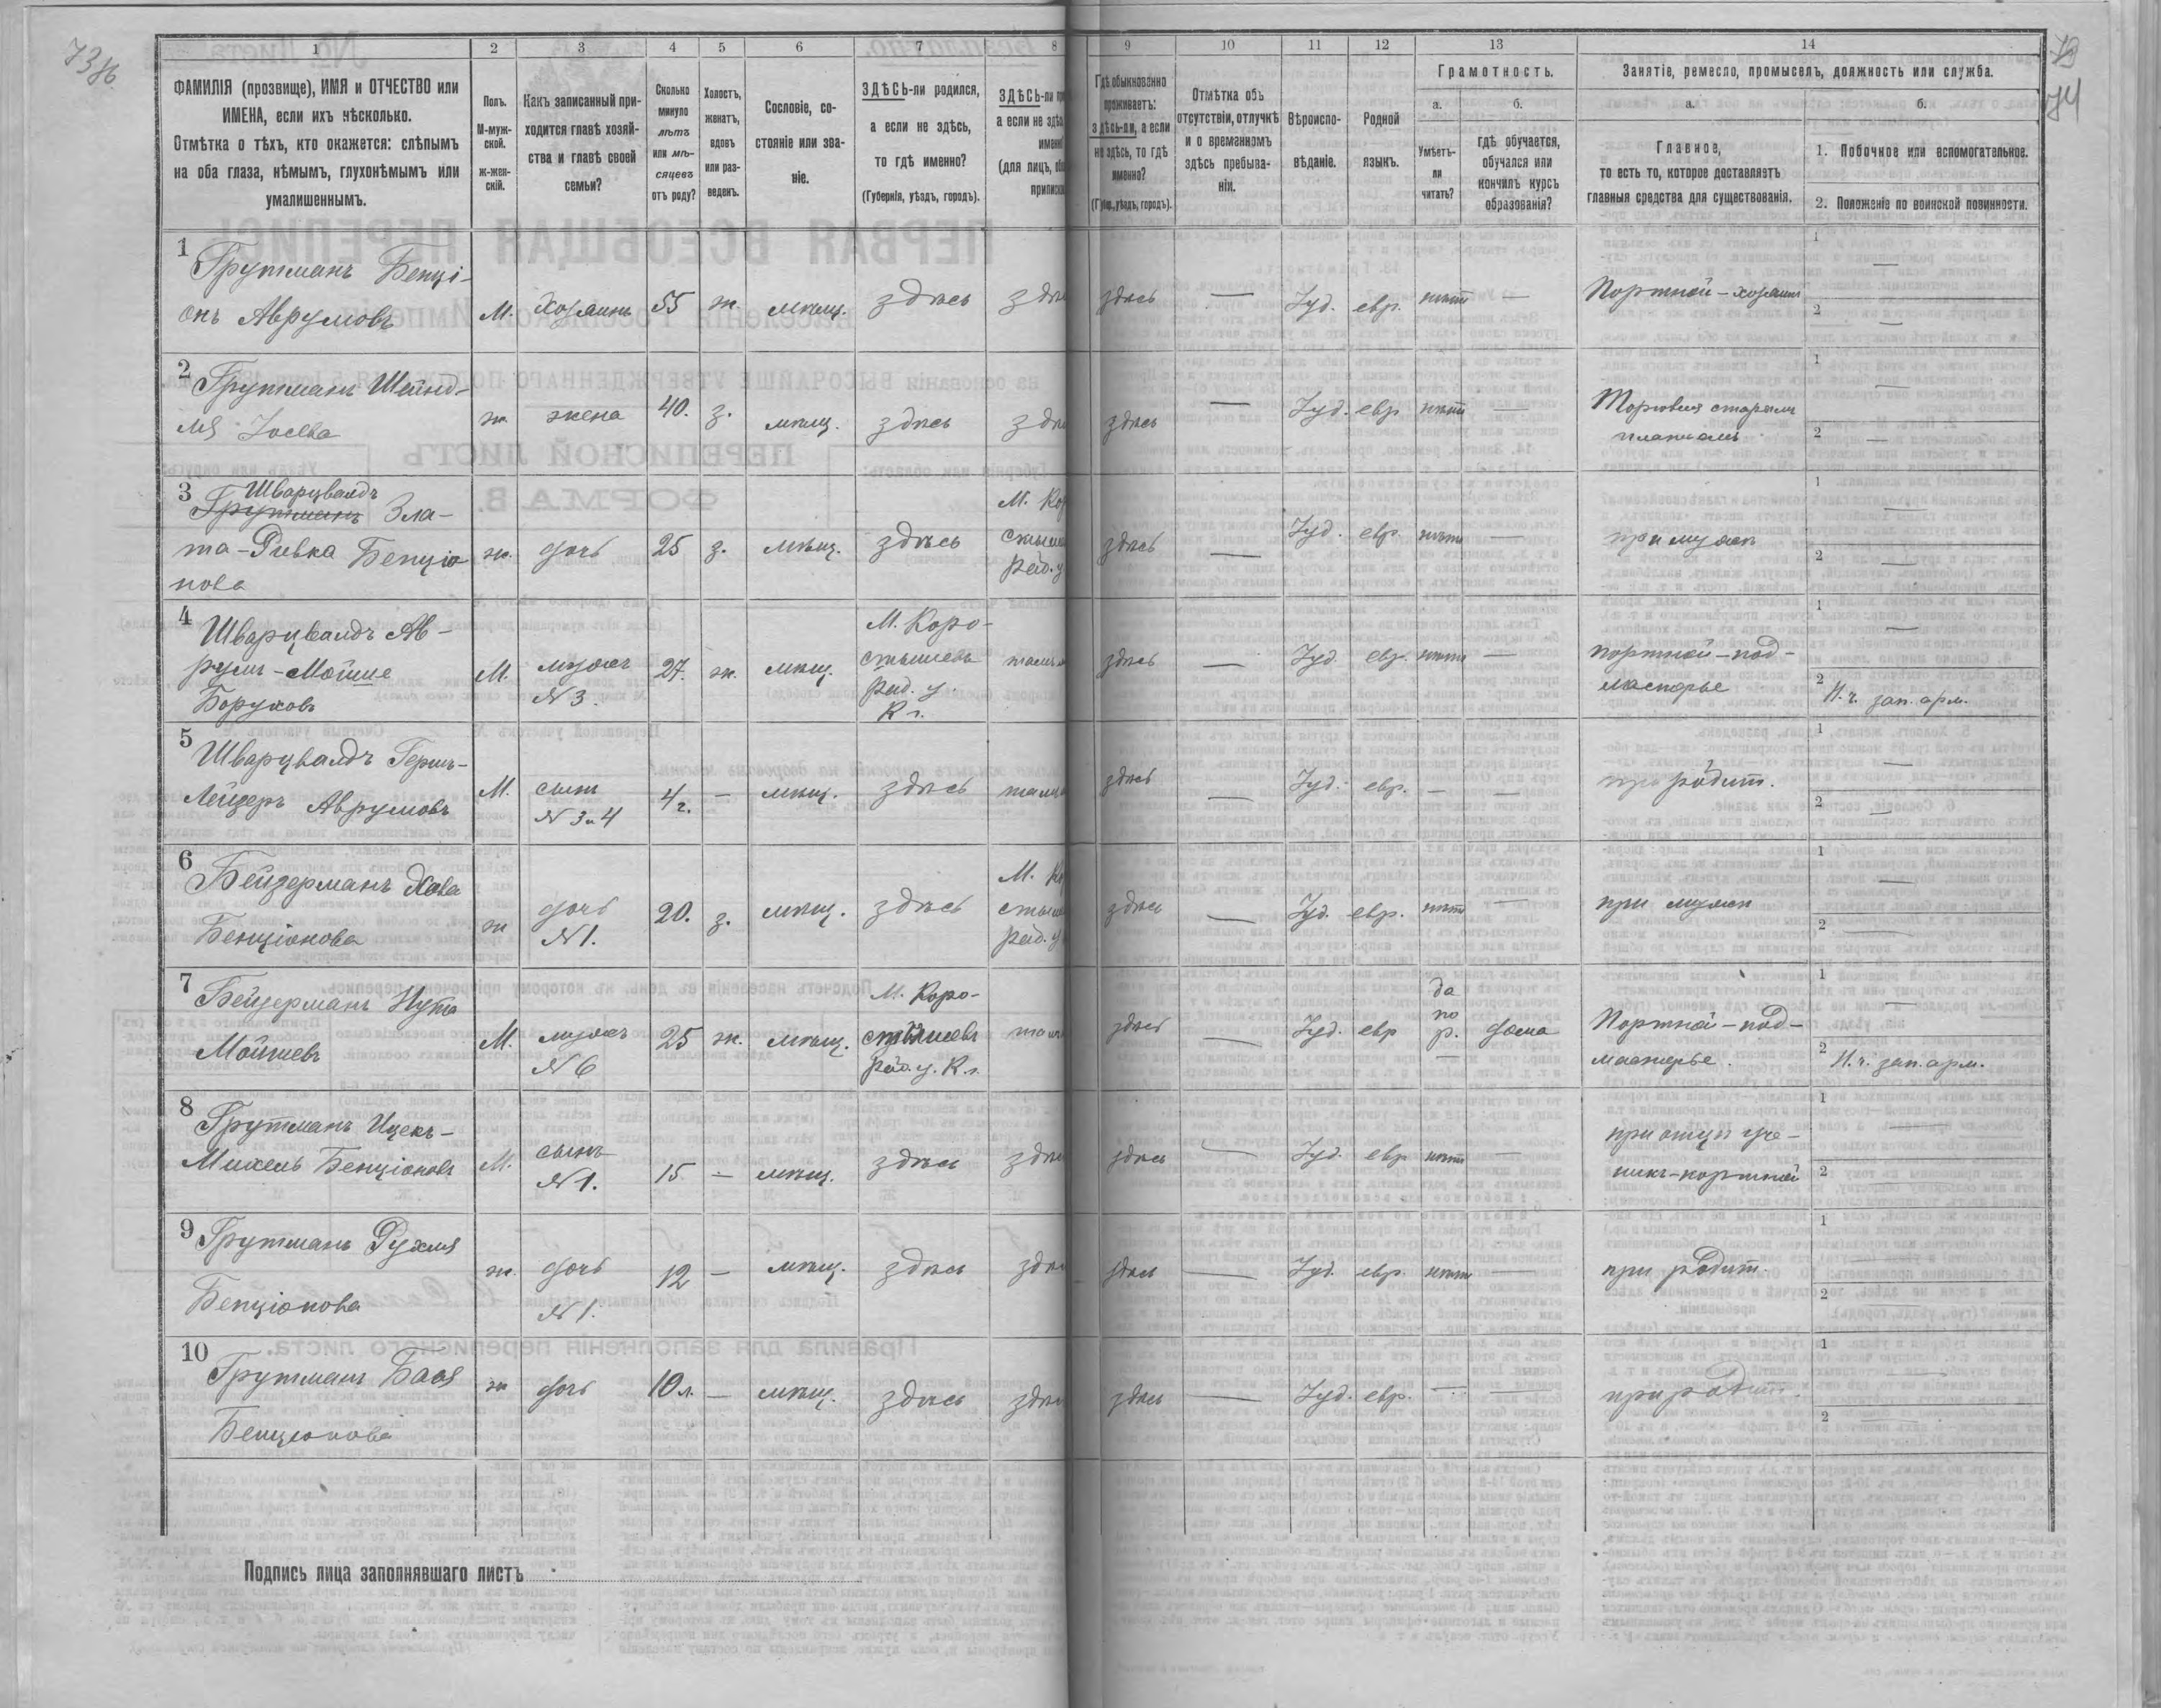 73 об.
73
74
1 2 3 4 5 6 7 8 9 10 11 12 13 14
ФАМИЛІЯ (прозвище), ИМЯ и ОТЧЕСТВО или
ИМЕНА, если ихъ нѣсколько.
Отмѣтка о тѣхъ, кто окажется: слѣпымъ
на оба глаза, нѣмымъ, глухонѣмымъ или
умалишеннымъ.
Полъ.
М-муж-
ской.
ж-жен-
скій.
Какъ записанный при-
ходится главѣ хозяй-
ства и главѣ своей
семьи?
Сколько
минуло
лѣтъ
или мѣ-
сяцевъ
отъ роду?
Холостъ,
женатъ,
вдовъ
или раз-
веденъ.
Сословіе, со-
стояніе или зва-
ніе.
ЗДѢСЬ-ли родился,
а если не здѣсь,
то гдѣ именно?
(Губернія, уѣздъ, городъ).
ЗДѢСЬ-ли
а если не здѣ
именно
(для лицъ,
приписки
Гдѣ обыкновенно
проживаетъ:
здѣсь-ли, а если
не здѣсь, то гдѣ
именно?
(Губ., уѣздъ, городъ).
Отмѣтка объ
отсутствіи, отлучкѣ
и о временномъ
здѣсь пребыва-
ніи.
Вѣроиспо-
вѣданіе.
Родной
языкъ.
Грамотность.
а.
Умѣетъ-
ли
читать?
б.
гдѣ обучается,
обучался или
кончилъ курсъ
образованія?
Занятіе, ремесло, промыселъ, должность или служба.
а.
Главное,
то есть то, которое доставляетъ
главныя средства для существованія.
б.
1. Побочное или вспомогательное.
2. Положеніе по воинской повинности.
1 Грутманъ Бенці-
онъ Аврумовъ М. Хозяинъ 55 ж. мѣщ. здѣсь здѣ здѣсь — Іуд. евр. нѣтъ — Портной-хозяинъ 1 — 2 —
2 Грутманъ Шейнд-
ля Іосева ж. жена 40. з. мѣщ. здѣсь здѣ здѣсь — Іуд. евр. нѣтъ — Торговля старымъ
платьемъ 1 — 2 —
3 Шварцвалдъ
Грутманъ Зла-
та-Ривка Бенціо
нова ж. дочь 25 з. мѣщ. здѣсь М. Кор
стыше
Рад. у здѣсь — Іуд. евр. нѣтъ — при мужѣ 1 — 2 —
4 Шварцвалдъ Ав-
румъ-Мойше
Боруховъ М. мужъ
N 3. 27. ж. мѣщ. М. Коро-
стышевъ
Рад. у.
К г. тамъ здѣсь — Іуд. евр. нѣтъ — портной-под-
мастерье 1 — 2 Н. ч. зап. арм.
5 Шварцвалдъ Герш-
Лейзеръ Аврумовъ М. сынъ
N 3 и 4 4 г. — мѣщ. здѣсь тамъ здѣсь — Іуд. евр. — — при родит. 1 — 2 —
6 Бейдерманъ Хава
Бенціонова ж дочь
N 1. 20. з. мѣщ. здѣсь М. Ко
стыш
Рад. у здѣсь — Іуд. евр. нѣтъ — при мужѣ 1 — 2 —
7 Бейдерманъ Нута
Мойшевъ М. мужъ
N 6 25 ж. мѣщ. М. Коро-
стышевъ
Рад. у. К г. тамъ здѣсь — Іуд. евр да
по
р. дома Портной-под-
мастерье. 1 — 2 Н. ч. зап. арм.
8 Грутманъ Ицекъ-
Михель Бенціоновъ М. сынъ
N 1. 15 — мѣщ. здѣсь здѣ здѣсь — Іуд. евр нѣтъ — при отцѣ уче-
никъ-портной 1 2
9 Грутманъ Рухля
Бенціонова ж. дочь
N 1. 12 — мѣщ. здѣсь здѣ здѣсь — Іуд. евр. нѣтъ — при родит. 1 2
10 Грутманъ Бася
Бенціонова ж дочь 10 л. — мѣщ. здѣсь здѣ здѣсь — Іуд. евр. — — при родит. 1 — 2 —
Подпись лица заполнявшаго листъ